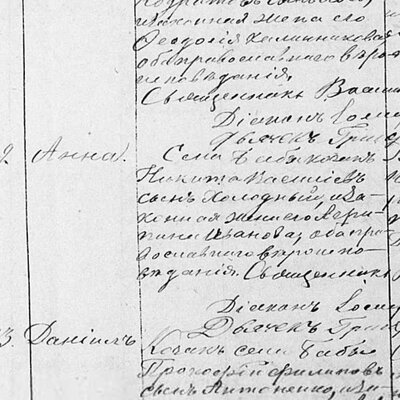 законная жена его
Феодосія Калинникова,
оба православнаго вѣро-
исповѣданія.
Священникъ Васи
Діаконъ Косм
Дьячекъ Григ
2. Анна. Села козакъ
Никита Василіевъ
сынъ Холодный, за-
конная жена его
Иванова, оба пра-
вославнаго вѣроиспо-
вѣданія. Священникъ
Діаконъ Косм
Дьячекъ Григ
3 Даніилъ Козакъ села Бабы
Прокофій Филиповъ
сынъ Антоненко, за-